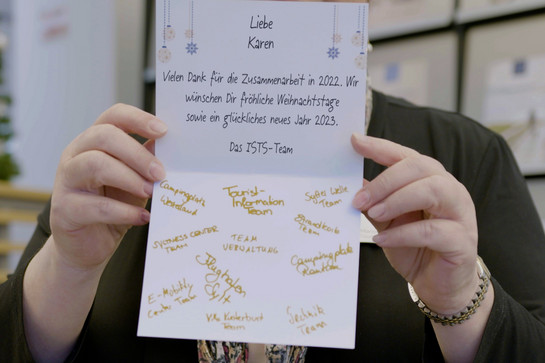 Liebe
Karen
Vielen Dank für die Zusammenarbeit in 2022. Wir
wünschen Dir fröhliche Weihnachtstage
sowie ein glückliches neues Jahr 2023.
Das ISTS-Team
Campingplatz
Westerland
Tourist-
Information
Team
Sylter Welle
Team
Strandkorb
Team
SYLTNESS CENTER
TEAM
TEAM
VERWALTUNG
Campingplatz
Rantum
Flughafen
Sylt
E-Mobility
Center Team
Villa Kunterbunt
Team
Technik
Team